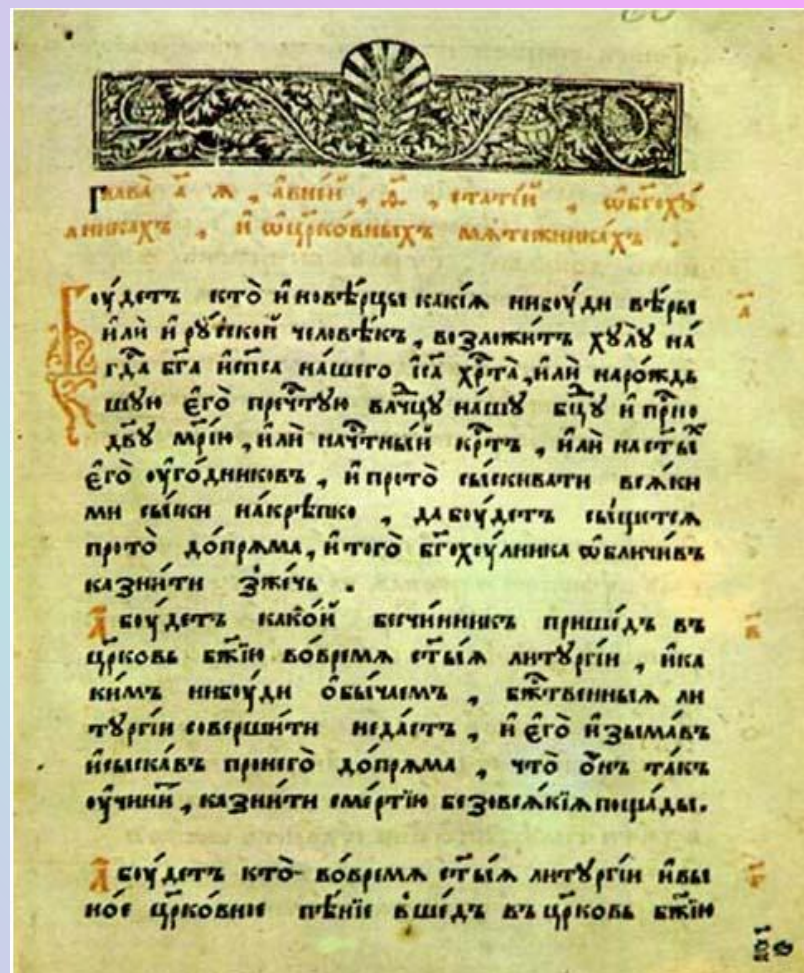 Глава̀ а҃ ѧ , а҆вне́й , ѳ҃ , статі́й , ѡ҆бг҃охꙋ́
лникахъ , и҆ ѡ҆цр҃ко́вныхъ мѧте́жникахъ .
Боу́детъ кто̀ и҆новѣ́рцы какі́ѧ нибоу́ди вѣ́ры
и҆лѝ и҆ рꙋ́сской человѣ́къ , возложи́тъ хꙋлꙋ̀ на́
гд҃а бг҃а и҆ сп҃са на́шего і҆с҃а хр҃та̀ , и҆лѝ наро́ждь
шꙋю є҆го̀ преч҃тꙋю влⷣчцꙋ на́шꙋ бц҃ꙋ и҆ прⷭ҇но
дв҃ꙋ мр҃і́ю , и҆лѝ нач҃тны́й кр҃тъ , и҆лѝ на ст҃ы́х
є҆го̀ оу҆го́дниковъ , и҆ прото̀ сы́скивати всѧ́ки
ми сы́ски на́крѣпко , да боу́детъ сы́щетсѧ
прото̀ до́прѧма , и҆ того̀ бг҃охоу́лника ѡ҆бличи́въ
казни́ти зже́чь .
а҃
А боу́детъ како́й бесчи́нникъ прише́дъ въ
цр҃ковь бж҃ію во́времѧ ст҃ы́ѧ литꙋргі́и , и҆ ка
ки́мъ нибоу́ди ѻ҆бы́чаемъ , бжⷭ҇твенныѧ ли
тꙋргі́и соверши́ти неда́стъ , и҆ є҆го̀ и҆зыма́въ
и҆ сыска́въ пронего̀ до́прѧма , что̀ ѻ҆́нъ та́къ
оу҆чини́т , казни́ти сме́ртїю безовсѧ́кїѧ поща́ды .
в҃
А боу́детъ кто̀ во́времѧ ст҃ы́ѧ литꙋргі́и и҆ вы
но́е цр҃ко́вное пѣ́нїе вше́дъ въ цр҃ковь бж҃ію
г҃